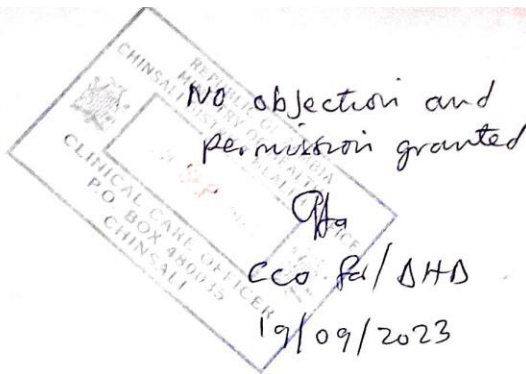 REPUBLIC OF ZAMBIA
MINISTRY OF HEALTH
CHINSALI DISTRICT HEALTH OFFICE
SEP
CLINICAL CARE OFFICER
P.O BOX 480035
CHINSALI
No objection and
permission granted
CCO
DHD
19/09/2023